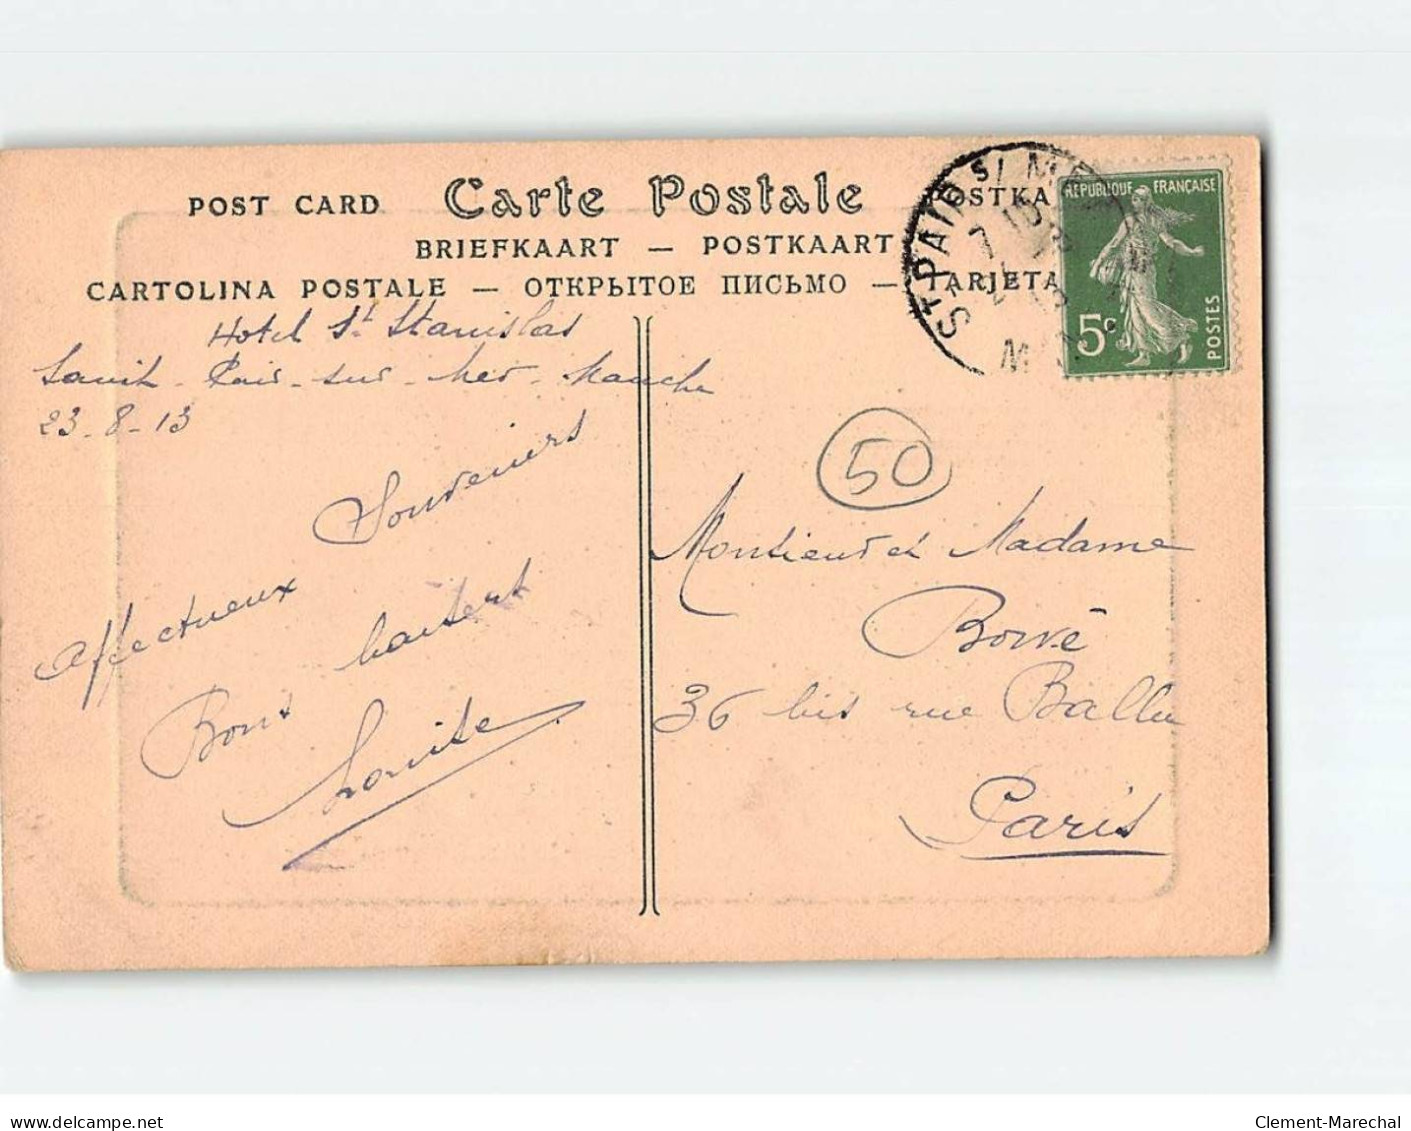 POST CARD Carte Postale POSTKA
BRIEFKAART — POSTKAART
CARTOLINA POSTALE — ОТКРЫТОЕ ПИСЬМО — TARJETA
ST PAIR S/ MER
RÉPUBLIQUE FRANÇAISE
5c
POSTES
Hotel St Stanislas
Saint-Pair-sur-Mer-Manche
23-8-13
Affectueux Souvenirs
Bons baisers
Louise
50
Monsieur et Madame
36 bis rue Ballu
Paris
www.delcampe.net
Clement-Marechal